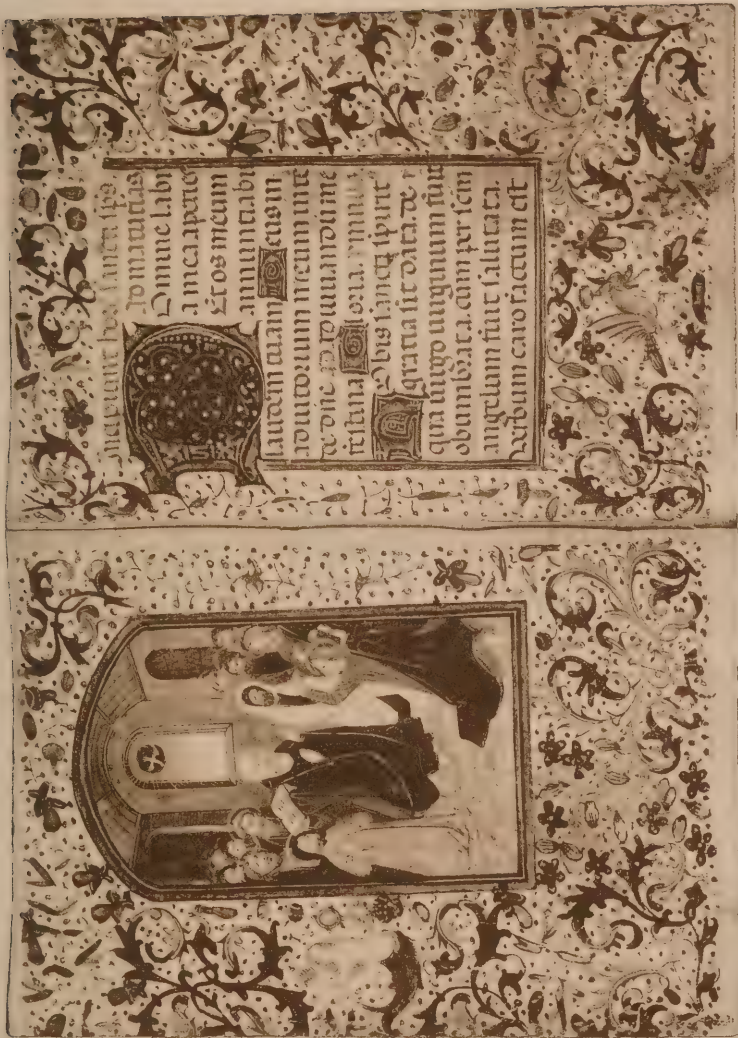 Incipiunt hore sancti sps
Ad matutias
Domine labi
a mea aperies
Et os meum
annuntiabit
laudem tuam Deus in
adiutorium meum inte
de dne ad adiuuandum me
festina Gloria
Nobis sancti spirit
gratia sit data de
qua uirgo uirginum fuit
obumbrata cum per scm
angelum fuit salutata
Verbum caro factum est